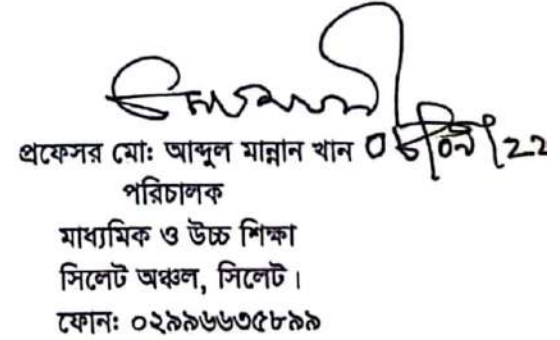 প্রফেসর মো: আব্দুল মান্নান খান
পরিচালক
মাধ্যমিক ও উচ্চ শিক্ষা
সিলেট অঞ্চল, সিলেট।
ফোন: ০২৯৯৬৬৩৫৮৯৯